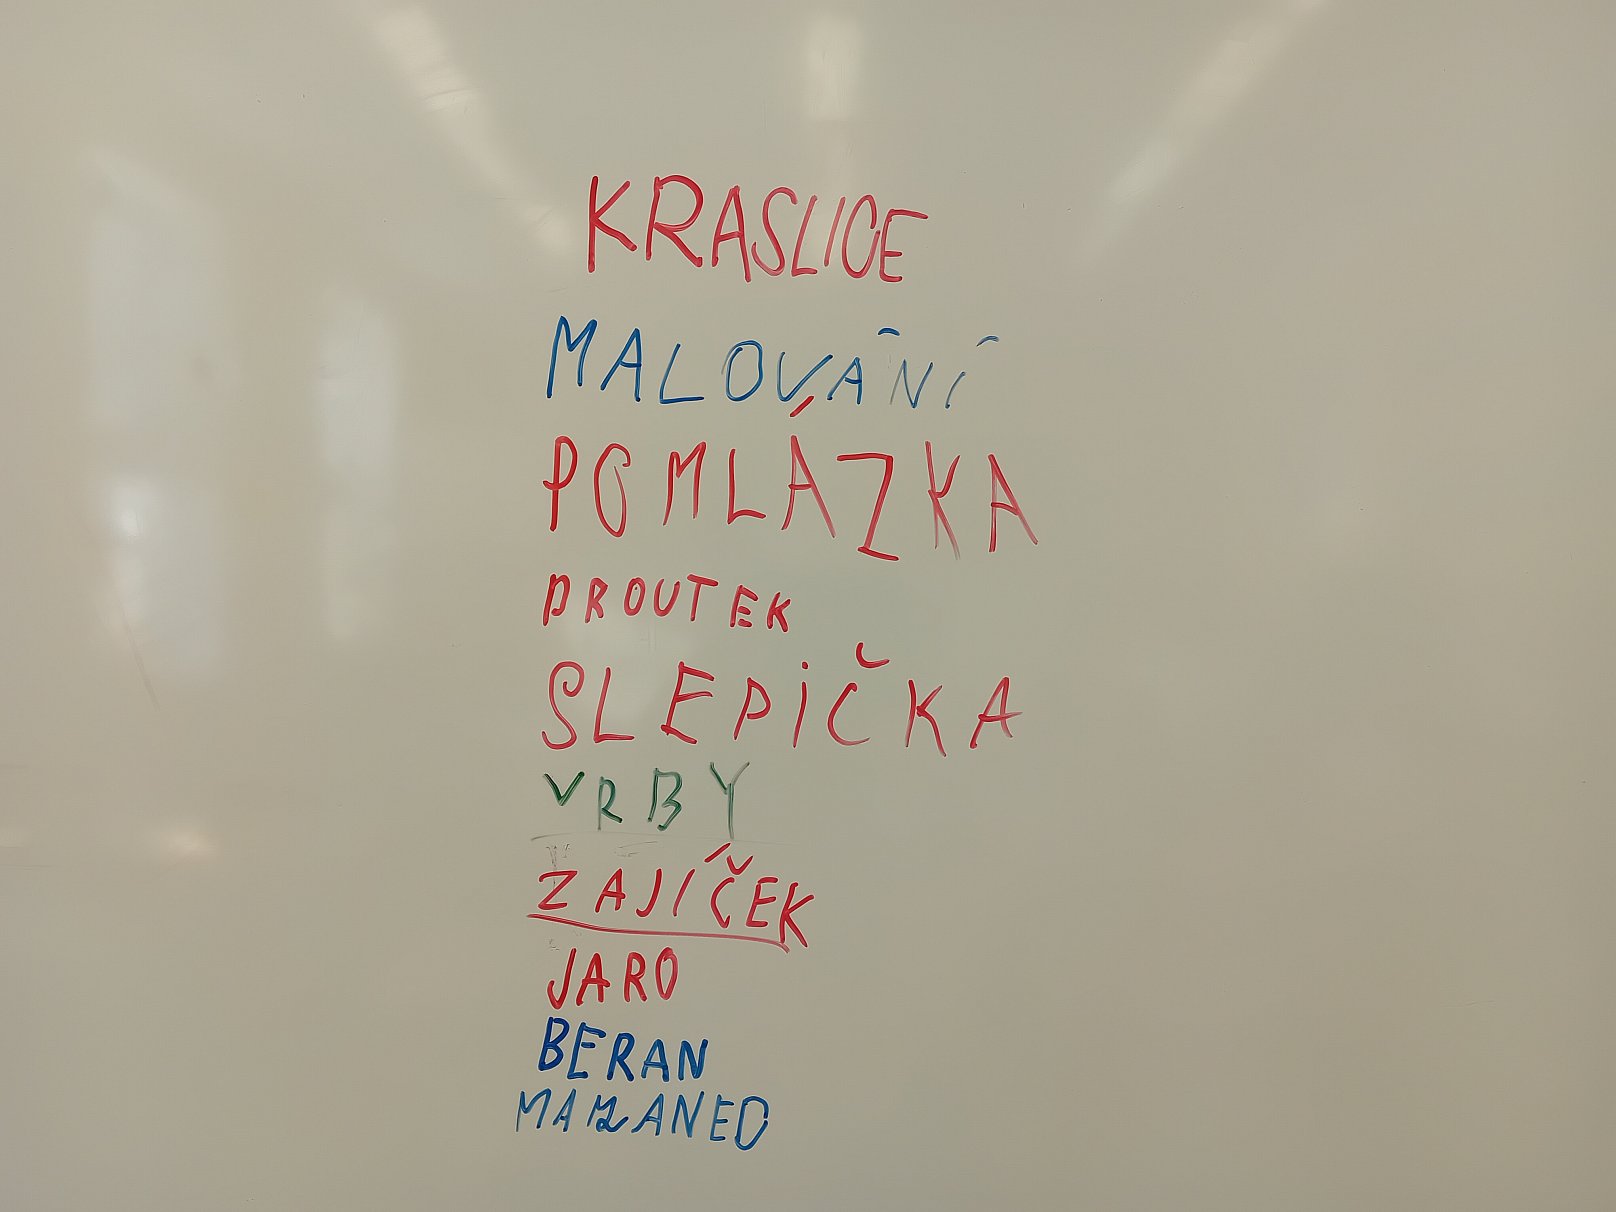 KRASLICE
MALOVÁNÍ
POMLÁZKA
PROUTEK
SLEPIČKA
VRBY
ZAJÍČEK
JARO
BERAN